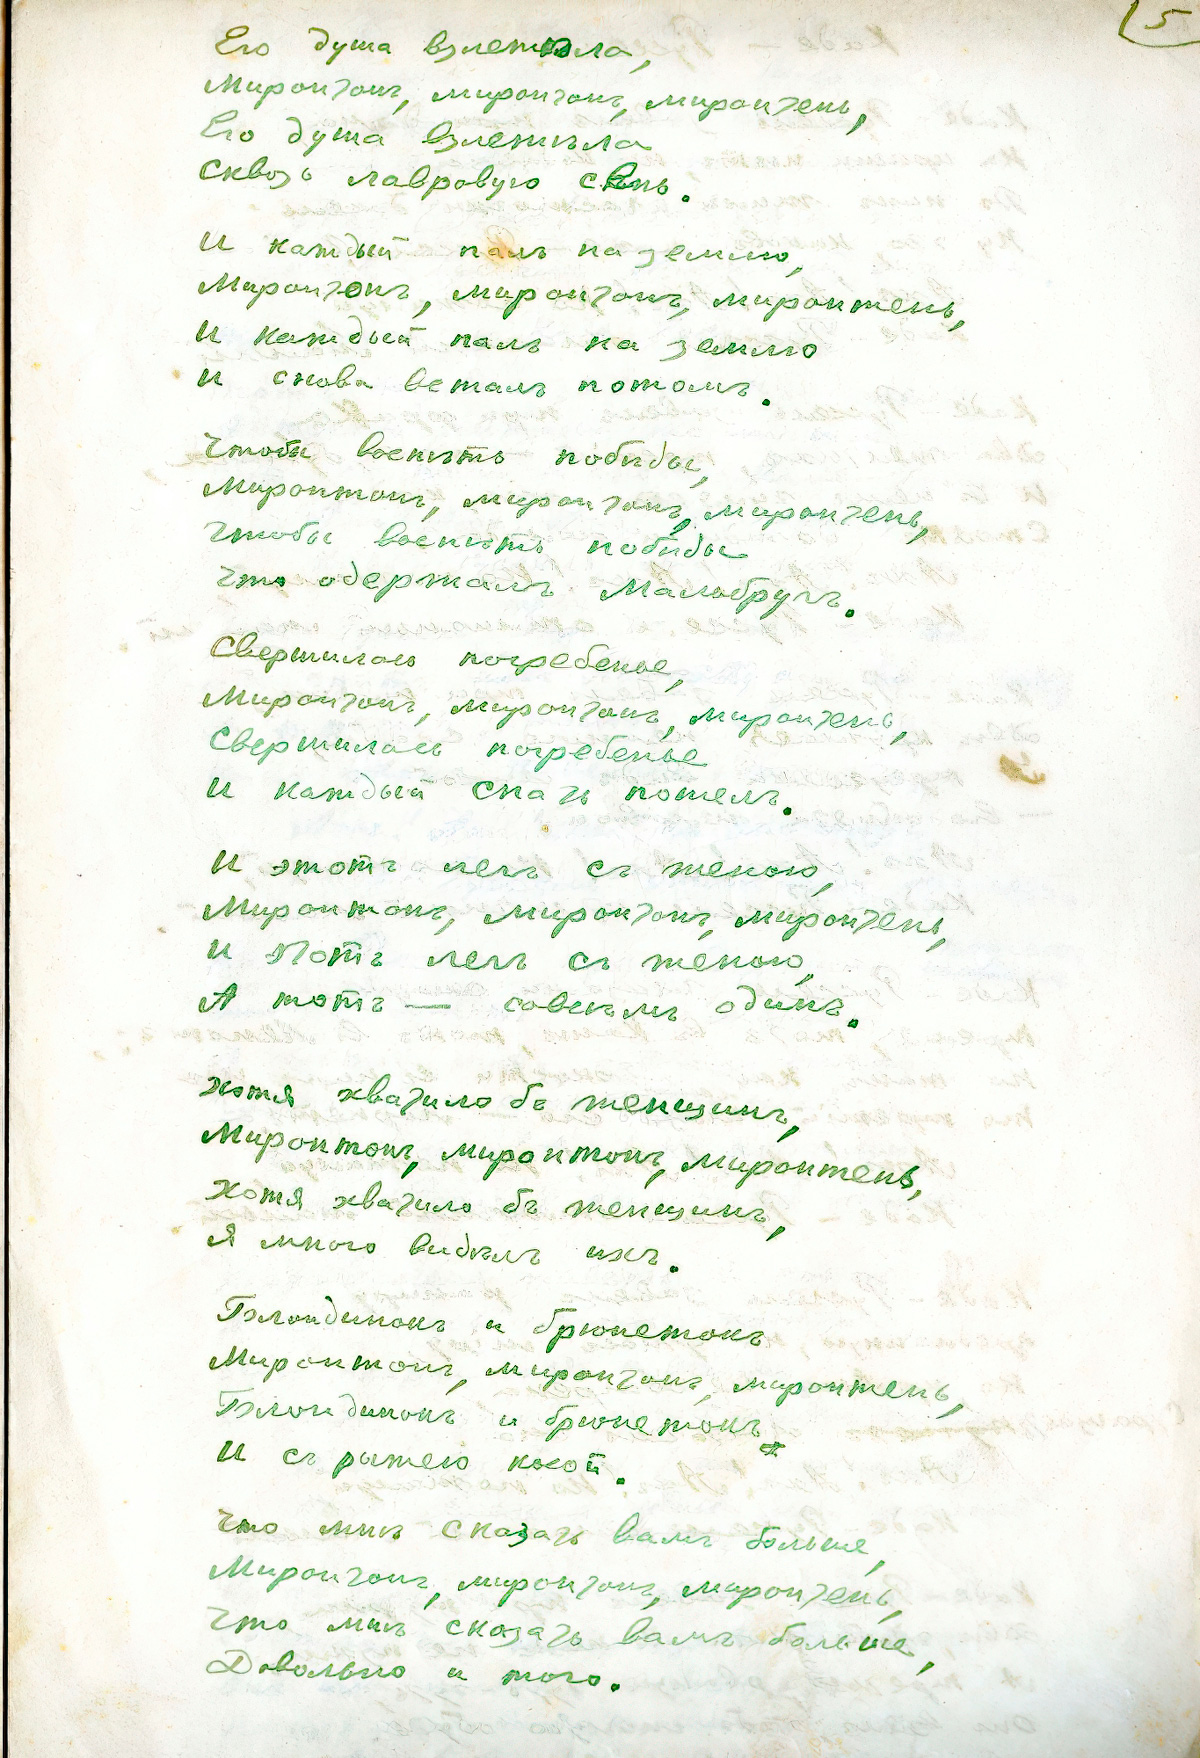 5
Его душа взлетѣла,
Миронтонъ, миронтонъ, миронтень,
Его душа взлетѣла
Сквозь лавровую сѣнь.
И каждый палъ на землю,
Миронтонъ, миронтонъ, миронтень,
И каждый палъ на землю
И снова всталъ потомъ.
Чтобы воспѣть побѣды,
Миронтонъ, миронтонъ, миронтень,
Чтобы воспѣть побѣды
Что одержалъ Мальбругъ.
Свершилось погребенье,
Миронтонъ, миронтонъ, миронтень,
Свершилось погребенье
И каждый спать пошелъ.
И этотъ легъ съ женою,
Миронтонъ, миронтонъ, миронтень,
И этотъ легъ съ женою,
А тотъ — совсѣмъ одинъ.
Хотя хватило бъ женщинъ,
Миронтонъ, миронтонъ, миронтень,
Хотя хватило бъ женщинъ,
Я много видѣлъ ихъ.
Блондинокъ и брюнетокъ
Миронтонъ, миронтонъ, миронтень,
Блондинокъ и брюнетокъ
И съ рыжею косой.
Что мнѣ сказать вамъ больше,
Миронтонъ, миронтонъ, миронтень,
Что мнѣ сказать вамъ больше,
Довольно и того.